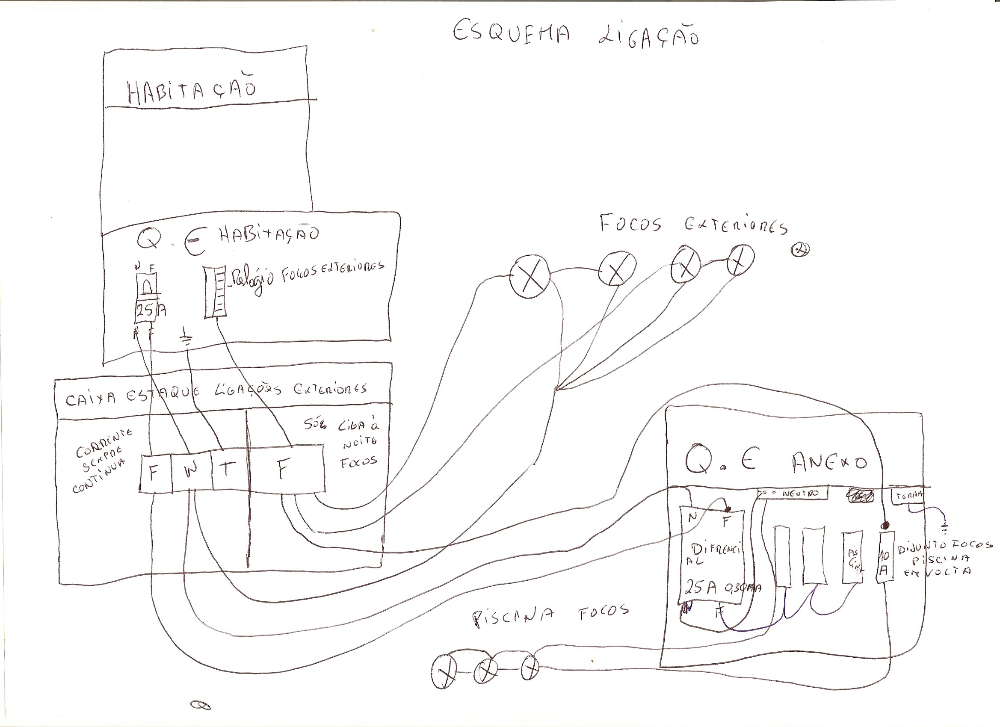 ESQUEMA LIGAÇÃO
HABITAÇÃO
Q.E HABITAÇÃO
N F
25A
N F
Relógio FOCOS EXTERIORES
FOCOS EXTERIORES
CAIXA ESTAQUE LIGAÇÕES EXTERIORES
CORRENTE
SEMPRE
CONTÍNUA
SÓ LIGA À
NOITE
FOCOS
F N T F
Q.E ANEXO
NEUTRO
TERRA
N F
DIFRENCI
AL
25A 0,30MA
N F
10
A
DIJUNTO FOCOS
PISCINA
EM VOLTA
PISCINA FOCOS